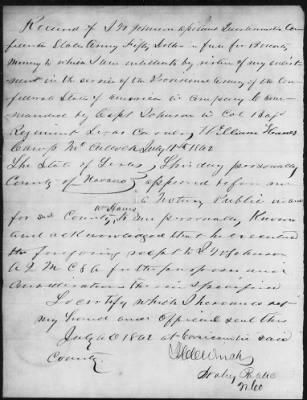 Received of J W Johnson Captain Quartermaster Con-
federate States Army Fifty Dollars in full for Bounty
Money to which I am entitled by virtue of my enlist-
ment in the service of the Provisional Army of the Con-
federate States of America in Company to com-
manded by Capt Johnson in Col
Regiment Texas William
Camp McCulloch July 1862
The State of Texas, This day personally
County of Navarro appeared before me
a Notary Public in and
for said County, to me personally known
and acknowledged that he executed
the foregoing receipt to J W Johnson
A Q M C S A for the purposes and
considerations therein specified
To certify which I hereunto set
my hand and official seal this
July 1862 at Corsicana said
County
Notary Public